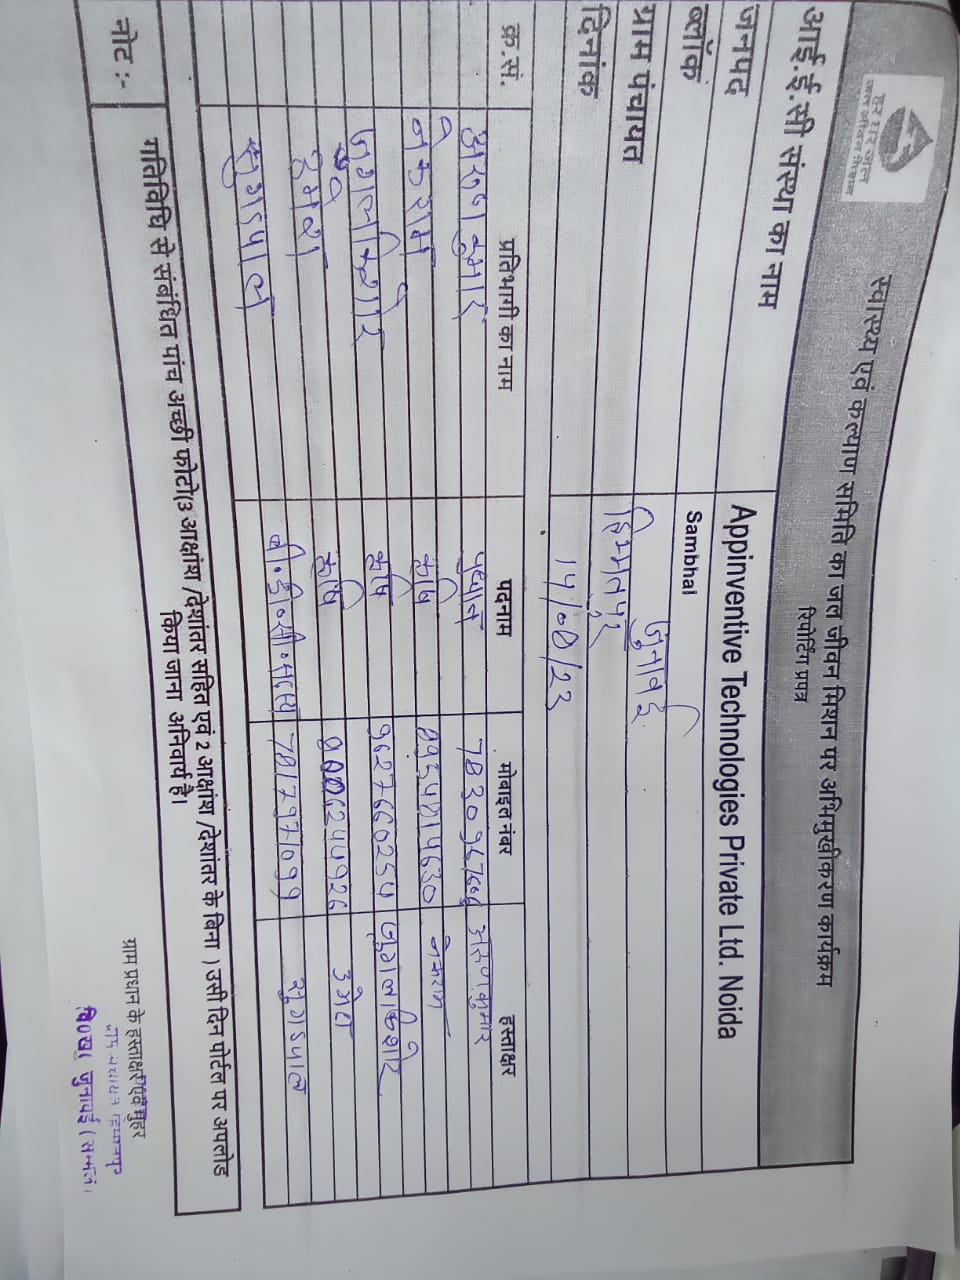 हर घर जल
जल जीवन मिशन
स्वास्थ्य एवं कल्याण समिति का जल जीवन मिशन पर अभिमुखीकरण कार्यक्रम
रिपोर्टिंग प्रपत्र
आई.ई.सी संस्था का नाम Appinventive Technologies Private Ltd. Noida
जनपद Sambhal
ब्लॉक जुनावई
ग्राम पंचायत हिम्मतपुर
दिनांक 17/08/23
क्र.सं. प्रतिभागी का नाम पदनाम मोबाइल नंबर हस्ताक्षर
अरुण कुमार प्रधान अरुण कुमार
नेकराम कृषि नेकराम
जुगलकिशोर कृषि 9627660254 जुगलकिशोर
कृषि
बी.डी.सी. सदस्य
नोट :- गतिविधि से संबंधित पांच अच्छी फोटो(3 आक्षांश /देशांतर सहित एवं 2 आक्षांश /देशांतर के बिना ) उसी दिन पोर्टल पर अपलोड
किया जाना अनिवार्य है।
ग्राम प्रधान के हस्ताक्षर एवं मुहर
ग्राम पंचायत हिम्मतपुर
वि0ख0 जुनावई (सम्भल)